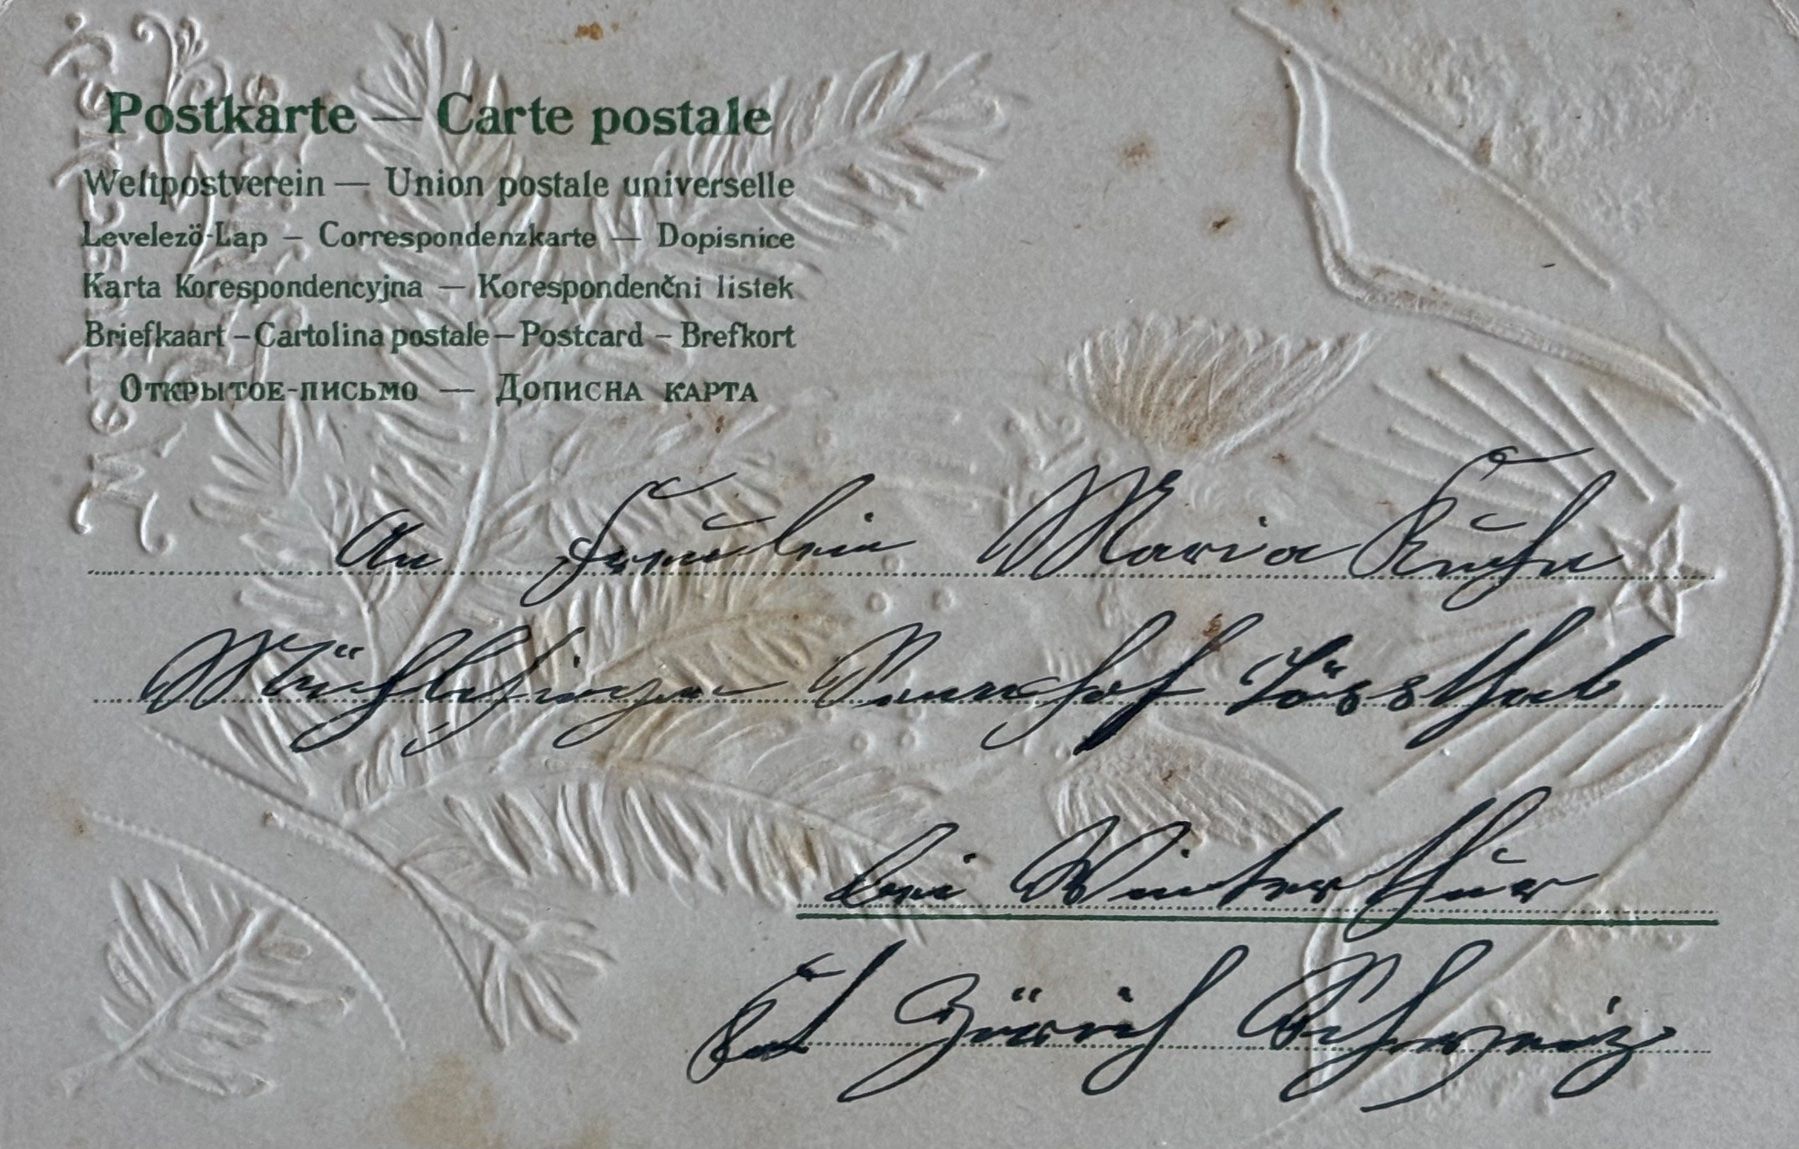 Postkarte — Carte postale
Weltpostverein — Union postale universelle
Levelezö-Lap — Correspondenzkarte — Dopisnice
Karta Korespondencyjna — Korespondenčni listek
Briefkaart – Cartolina postale – Postcard – Brefkort
Открытое-письмо — Дописна карта
An Fräulein Maria Kuhn
Sennhof Tössthal
bei Winterthur
Kt Zürich Schweiz